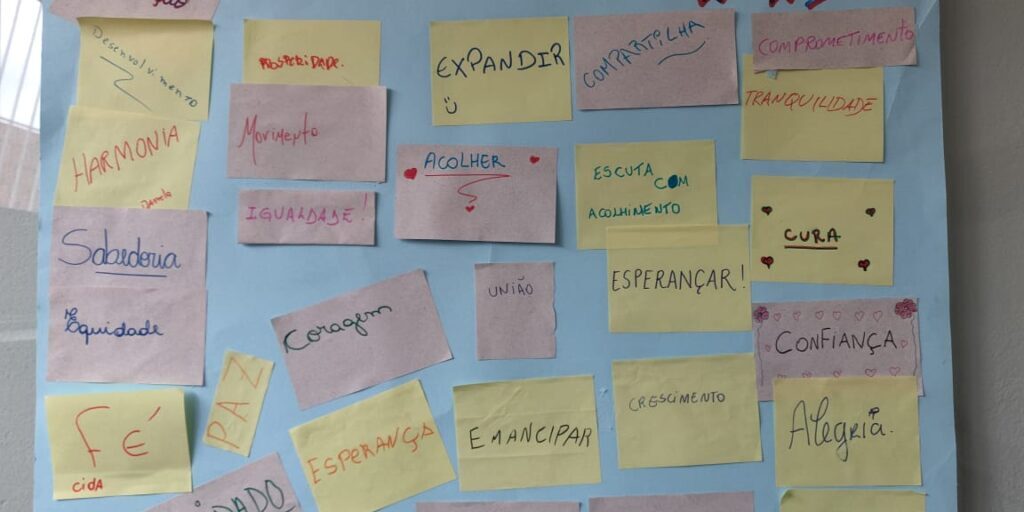 Desenvolvimento
PROSPERIDADE.
EXPANDIR
COMPARTILHA
COMPROMETIMENTO
TRANQUILIDADE
HARMONIA
Daniela
Movimento
ACOLHER
ESCUTA
COM
ACOLHIMENTO
IGUALDADE!
CURA
Sabedoria
UNIÃO
ESPERANÇAR!
Equidade
Coragem
CONFIANÇA
PAZ
FÉ
CIDA
ESPERANÇA
EMANCIPAR
CRESCIMENTO
Alegria.